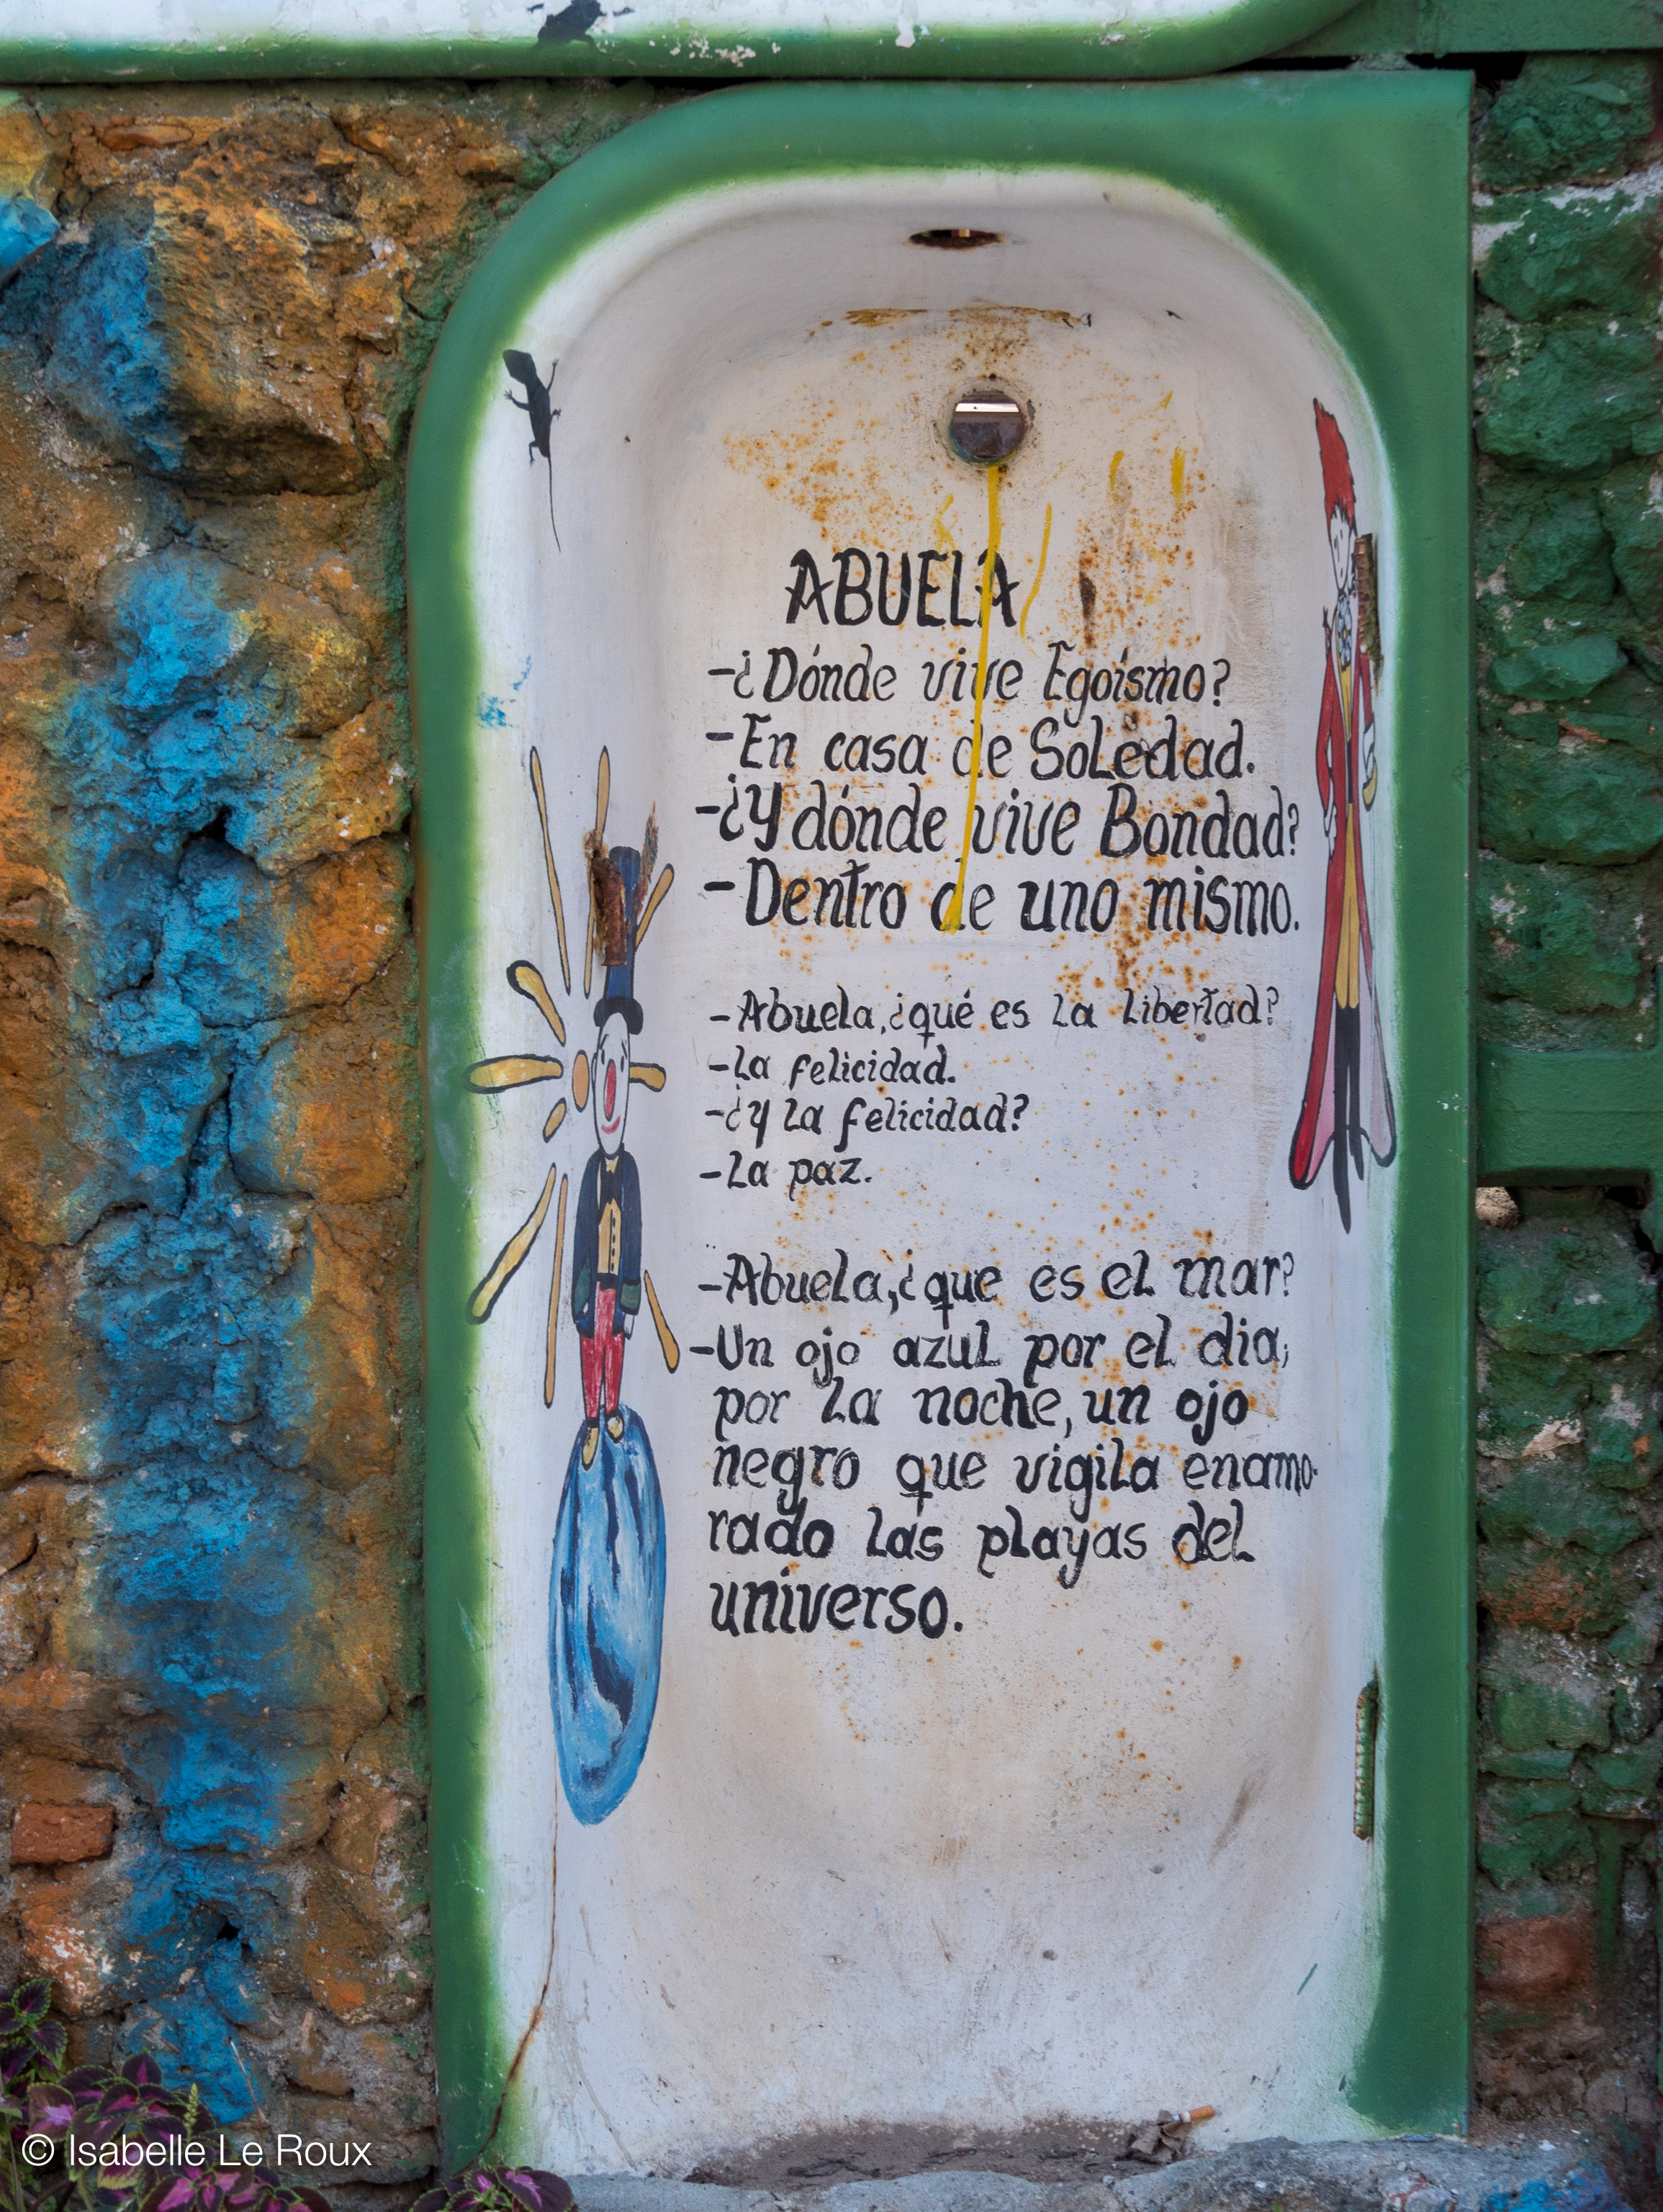 ABUELA
-¿Dónde vive Egoísmo?
-En casa de SoLedad.
-¿Y dónde vive Bondad?
-Dentro de uno mismo.
-Abuela,¿qué es la libertad?
-La felicidad.
-¿y la felicidad?
-La paz.
-Abuela,¿que es el mar?
-Un ojo azul por el dia,
por la noche, un ojo
negro que vigila enamo-
rado las playas del
universo.
© Isabelle Le Roux